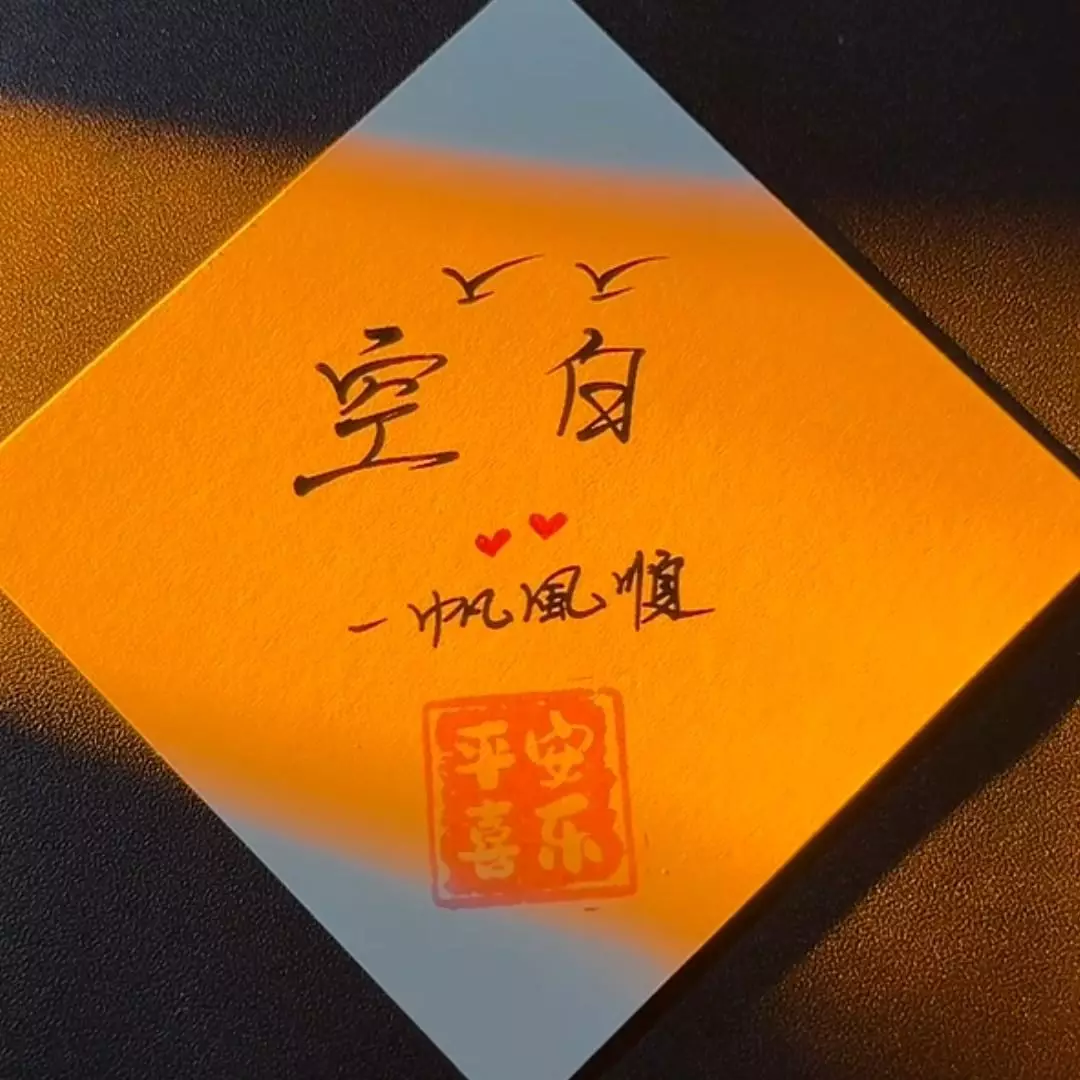 空白
一帆風順
平安
喜乐